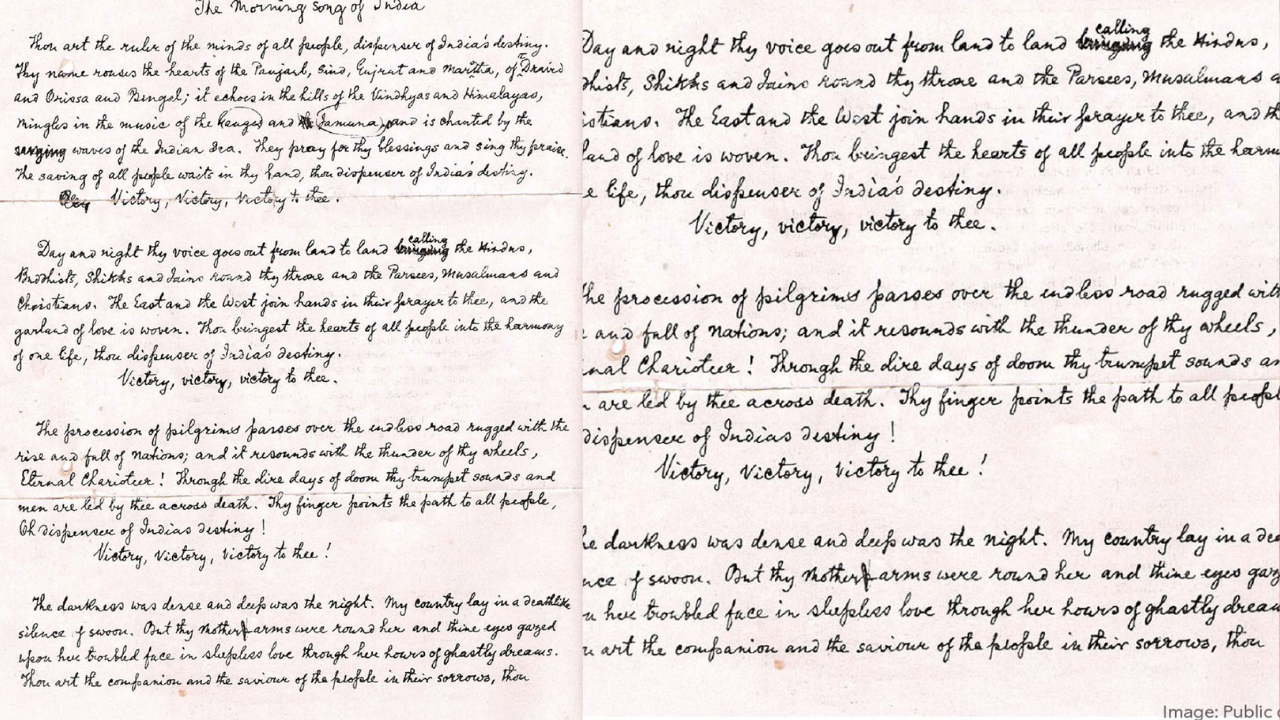 The Morning Song of India
Thou art the ruler of the minds of all people, dispenser of India's destiny.
Thy name rouses the hearts of the Panjaub, Sind, Gujrat and Maratha, of Dravid
and Orissa and Bengal; it echoes in the hills of the Vindhyas and Himalayas,
mingles in the music of the Ganges and Jamuna, and is chanted by the
waves of the Indian Sea. They pray for thy blessings and sing thy praise.
The saving of all people waits in thy hand, thou dispenser of India's destiny.
Victory, Victory, Victory to thee.
Day and night thy voice goes out from land to land calling the Hindus,
Buddhists, Shikhs and Jains round thy throne and the Parsees, Musalmans and
Christians. The East and the West join hands in their prayer to thee, and the
garland of love is woven. Thou bringest the hearts of all people into the harmony
of one life, thou dispenser of India's destiny.
Victory, victory, victory to thee.
The procession of pilgrims passes over the endless road rugged with the
rise and fall of Nations; and it resounds with the thunder of thy wheels,
Eternal Charioteer! Through the dire days of doom thy trumpet sounds and
men are led by thee across death. Thy finger points the path to all people,
Oh dispenser of Indias destiny!
Victory, Victory, Victory to thee!
The darkness was dense and deep was the night. My country lay in a deathlike
silence of swoon. But thy mother arms were round her and thine eyes gazed
upon her troubled face in sleepless love through her hours of ghastly dreams.
Thou art the companion and the saviour of the people in their sorrows, thou
Day and night thy voice goes out from land to land calling the Hindus,
dhists, Shikhs and Jains round thy throne and the Parsees, Musalmans a
istians. The East and the West join hands in their prayer to thee, and th
land of love is woven. Thou bringest the hearts of all people into the harm
e life, thou dispenser of India's destiny.
Victory, victory, victory to thee.
he procession of pilgrims passes over the endless road rugged with
and fall of Nations; and it resounds with the thunder of thy wheels,
nal Charioteer! Through the dire days of doom thy trumpet sounds an
are led by thee across death. Thy finger points the path to all peopl
dispenser of Indias destiny!
Victory, Victory, Victory to thee!
he darkness was dense and deep was the night. My country lay in a dea
nce of swoon. But thy mother arms were round her and thine eyes gaz
her troubled face in sleepless love through her hours of ghastly dream
u art the companion and the saviour of the people in their sorrows, thou
Image: Public